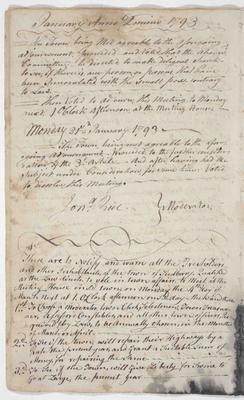 January Anno Domini 1793
The Town being Met agreable to the foregoing
adjournment proceeded and voted that the above
Committee be directed to make diligent search
to see if there is any person, or persons that have
been innoculated with the Small pox contrary
to Law.
Then Voted to adjourn this Meeting to Monday
next 1 O'Clock afternoon at the Meeting House
Monday 21st January 1793
The Town being met agreable to the afor
going adjournment, proceeded to the further consid
eration of the 3d Article. And after having had the
Subject under Consideration for some time: Voted
to disolve this Meeting.
Moderator
These are to Notify and warn all the Freeholders
and other Inhabitants of the Town of
as the Law directs to Vote in Town affairs to Meet at the
Meeting House in Sd Town on Monday the 4th Day of
March Next at 1 O'Clock afternoon on Sd day, then and there
1st To Chuse a Moderator, Town Clerk, Select men, Overseers
quired by Law, to be Annually chosen, in the Month
of March or April.
2d To See if the Town will repair their Highways by a
the present year, and Grant a Suitable Sum of
Money for repairing the Same
3d To See if the Town will Give Liberty for Swine to
Go at Large, the present year